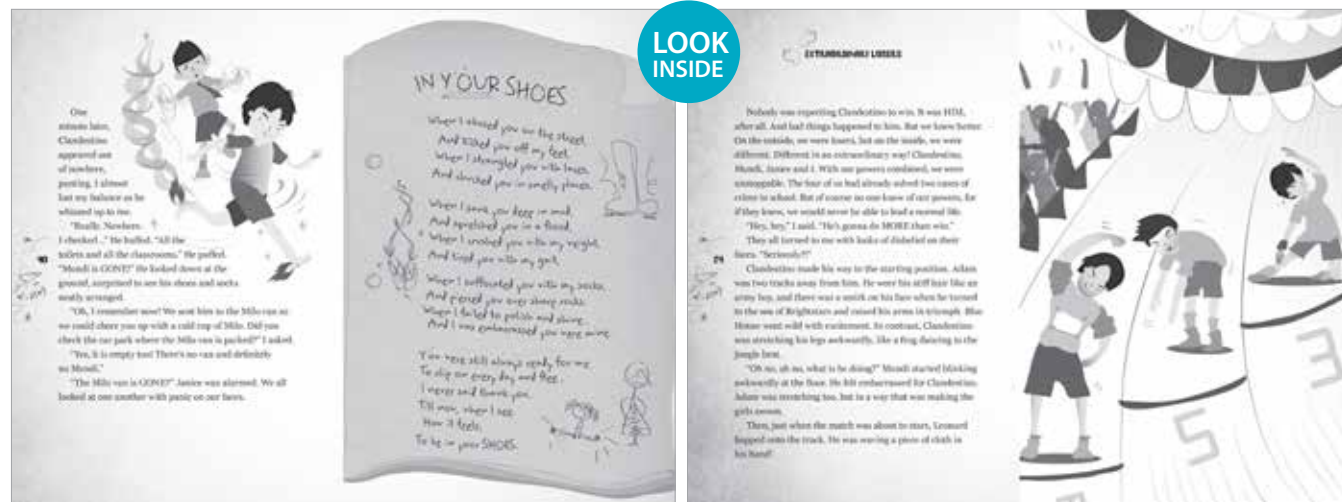 One
minute later,
Clandestino
appeared out
of nowhere,
panting. I almost
lost my balance as he
whizzed up to me.
"Really. Nowhere.
I checked..." He huffed. "All the
toilets and all the classrooms." He puffed.
"Mundi is GONE!" He looked down at the
ground, surprised to see his shoes and socks
neatly arranged.
"Oh, I remember now! We sent him to the Milo van so
we could cheer you up with a cold cup of Milo. Did you
check the car park where the Milo van is parked?" I asked.
"Yes, it is empty too! There's no van and definitely
no Mundi."
"The Milo van is GONE?" Janice was alarmed. We all
looked at one another with panic on our faces.
IN YOUR SHOES
When I abused you on the street,
And kicked you off my feet.
When I strangled you with laces.
And you in smelly places.
When I sank you deep in mud.
And splashed you in a flood.
When I crushed you with my weight.
And tired you with my gait.
When I suffocated you with my socks.
And pierced you over stone rocks.
When I failed to polish and shine.
And I was embarrassed you were mine.
You were still always ready for me
To slip on every day and flee.
I never said thank you.
Till now, when I see
How it feels
To be in your SHOES.
LOOK
INSIDE
EXTRAORDINARY LOSERS
Nobody was expecting Clandestino to win. It was HIM,
after all. And bad things happened to him. But we knew better.
On the outside, we were losers, but on the inside, we were
different. Different in an extraordinary way! Clandestino,
Mundi, Janice and I. With our powers combined, we were
unstoppable. The four of us had already solved two cases of
crime in school. But of course no one knew of our powers, for
if they knew, we would never be able to lead a normal life.
"Hey, hey," I said. "He's gonna do MORE than win."
They all turned to me with looks of disbelief on their
faces. "Seriously?!"
Clandestino made his way to the starting position. Adam
was two tracks away from him. He wore his stiff hair like an
army boy, and there was a smirk on his face when he turned
to the sea of Brightstars and raised his arms in triumph. Blue
House went wild with excitement. In contrast, Clandestino
was stretching his legs awkwardly, like a frog dancing to the
jungle beat.
"Oh no, oh no, what is he doing?" Mundi started blinking
awkwardly at the floor. He felt embarrassed for Clandestino.
Adam was stretching too, but in a way that was making the
girls swoon.
Then, just when the match was about to start, Leonard
hopped onto the track. He was waving a piece of cloth in
his hand!
3
5